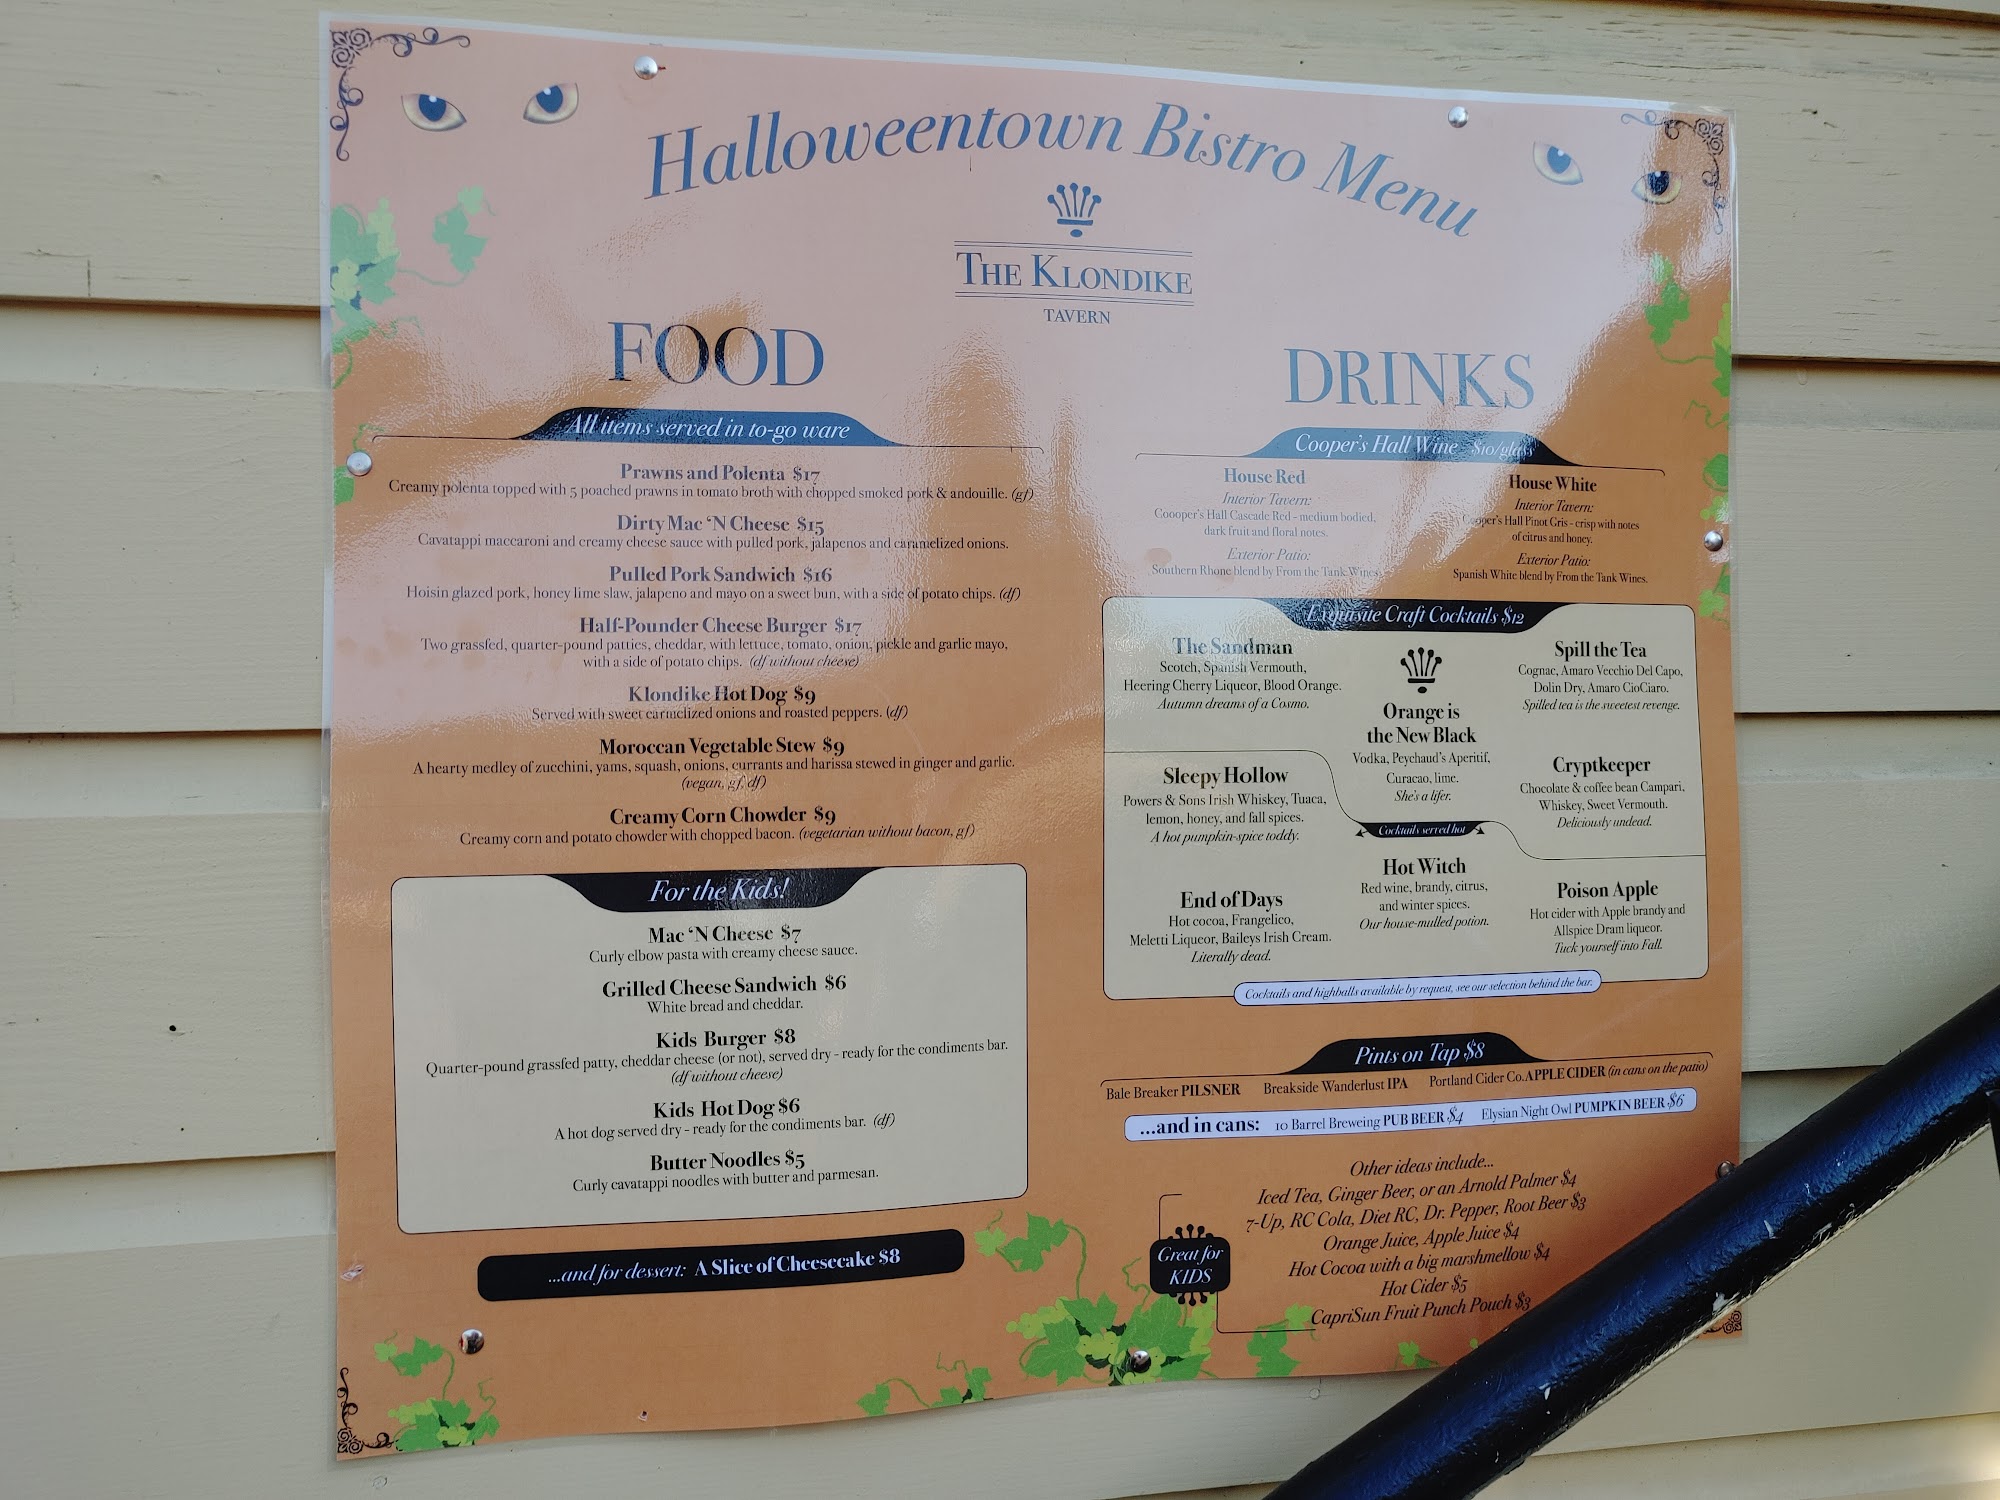 Halloweentown Bistro Menu
THE KLONDIKE
TAVERN
FOOD
All items served in to-go ware
Prawns and Polenta $17
Creamy polenta topped with 5 poached prawns in tomato broth with chopped smoked pork & andouille. (gf)
Dirty Mac ‘N Cheese $15
Cavatappi maccaroni and creamy cheese sauce with pulled pork, jalapenos and caramelized onions.
Pulled Pork Sandwich $16
Hoisin glazed pork, honey lime slaw, jalapeno and mayo on a sweet bun, with a side of potato chips. (df)
Half-Pounder Cheese Burger $17
Two grassfed, quarter-pound patties, cheddar, with lettuce, tomato, onion, pickle and garlic mayo,
with a side of potato chips. (df without cheese)
Klondike Hot Dog $9
Served with sweet carmelized onions and roasted peppers. (df)
Moroccan Vegetable Stew $9
A hearty medley of zucchini, yams, squash, onions, currants and harissa stewed in ginger and garlic.
(vegan, gf, df)
Creamy Corn Chowder $9
Creamy corn and potato chowder with chopped bacon. (vegetarian without bacon, gf)
For the Kids!
Mac ‘N Cheese $7
Curly elbow pasta with creamy cheese sauce.
Grilled Cheese Sandwich $6
White bread and cheddar.
Kids Burger $8
Quarter-pound grassfed patty, cheddar cheese (or not), served dry - ready for the condiments bar.
(df without cheese)
Kids Hot Dog $6
A hot dog served dry - ready for the condiments bar. (df)
Butter Noodles $5
Curly cavatappi noodles with butter and parmesan.
...and for dessert: A Slice of Cheesecake $8
DRINKS
Cooper's Hall Wine $10/glass
House Red
Interior Tavern:
Coooper's Hall Cascade Red - medium bodied,
dark fruit and floral notes.
Exterior Patio:
Southern Rhone blend by From the Tank Wines
House White
Interior Tavern:
Cooper's Hall Pinot Gris - crisp with notes
of citrus and honey.
Exterior Patio:
Spanish White blend by From the Tank Wines.
Exquisite Craft Cocktails $12
The Sandman
Scotch, Spanish Vermouth,
Heering Cherry Liqueur, Blood Orange.
Autumn dreams of a Cosmo.
Orange is
the New Black
Vodka, Peychaud's Aperitif,
Curacao, lime.
She's a lifer.
Spill the Tea
Cognac, Amaro Vecchio Del Capo,
Dolin Dry, Amaro CioCiaro.
Spilled tea is the sweetest revenge.
Cryptkeeper
Chocolate & coffee bean Campari,
Whiskey, Sweet Vermouth.
Deliciously undead.
Cocktails served hot
Sleepy Hollow
Powers & Sons Irish Whiskey, Tuaca,
lemon, honey, and fall spices.
A hot pumpkin-spice toddy.
End of Days
Hot cocoa, Frangelico,
Meletti Liqueur, Baileys Irish Cream.
Literally dead.
Hot Witch
Red wine, brandy, citrus,
and winter spices.
Our house-mulled potion.
Poison Apple
Hot cider with Apple brandy and
Allspice Dram liqueur.
Tuck yourself into Fall.
Cocktails and highballs available by request, see our selection behind the bar.
Pints on Tap $8
Bale Breaker PILSNER Breakside Wanderlust IPA Portland Cider Co.APPLE CIDER (in cans on the patio)
...and in cans: 10 Barrel Breweing PUB BEER $4 Elysian Night Owl PUMPKIN BEER $6
Other ideas include...
Iced Tea, Ginger Beer, or an Arnold Palmer $4
7-Up, RC Cola, Diet RC, Dr. Pepper, Root Beer $3
Orange Juice, Apple Juice $4
Hot Cocoa with a big marshmellow $4
Hot Cider $5
CapriSun Fruit Punch Pouch $3
Great for
KIDS